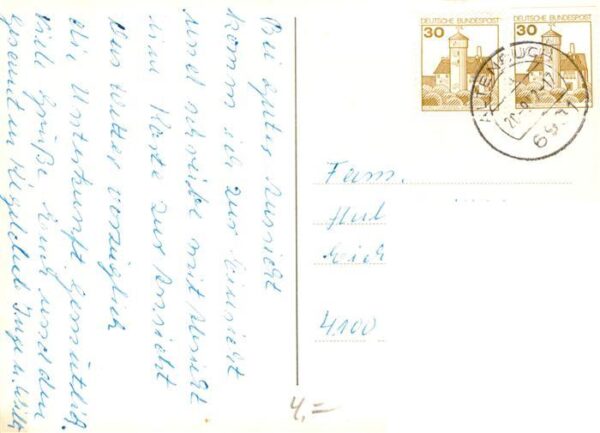 Bei guter Aussicht
komm ich zur Einsicht
und schreibe mit Absicht
eine Karte zur Ansicht
Das Wetter vorzüglich
die Unterkunft gemütlich.
Viele Grüße Euch und den
gesamten Kegelclub Inge u. Willi
DEUTSCHE BUNDESPOST
30
DEUTSCHE BUNDESPOST
30
ALTENBUCH
Fam.
4100
4,=